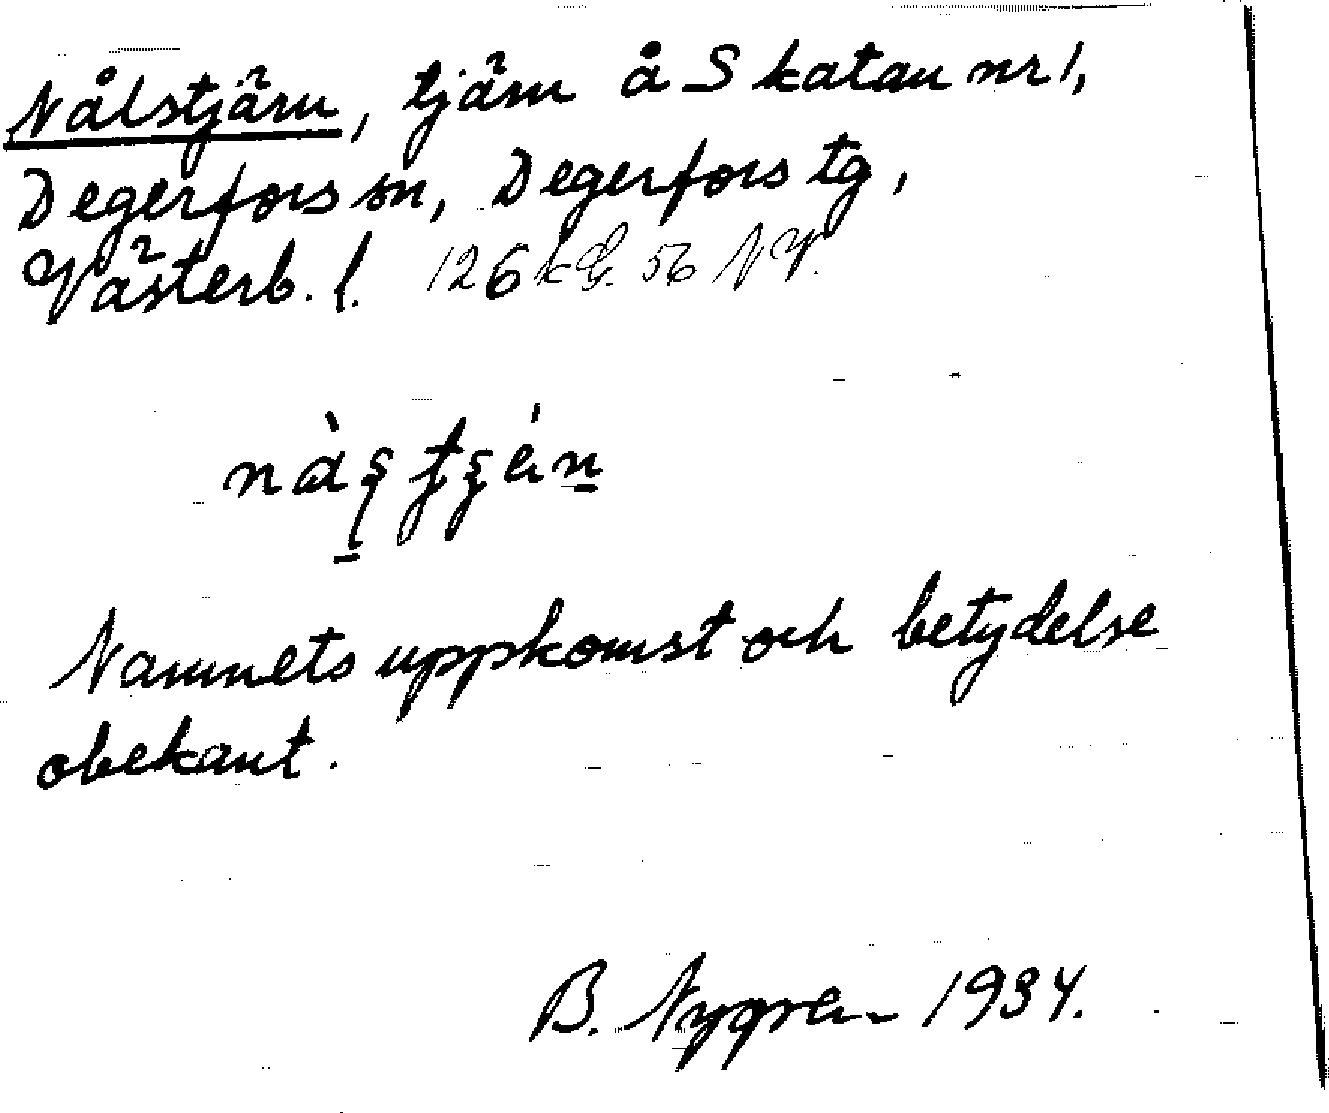 Nålstjärn, tjärn å Skatan nr 1,
Degerfors sn, Degerfors tg,
Västerb. l. 126 kG. 56 NY.
Namnets uppkomst och betydelse
obekant.
B. Nygren 1934.